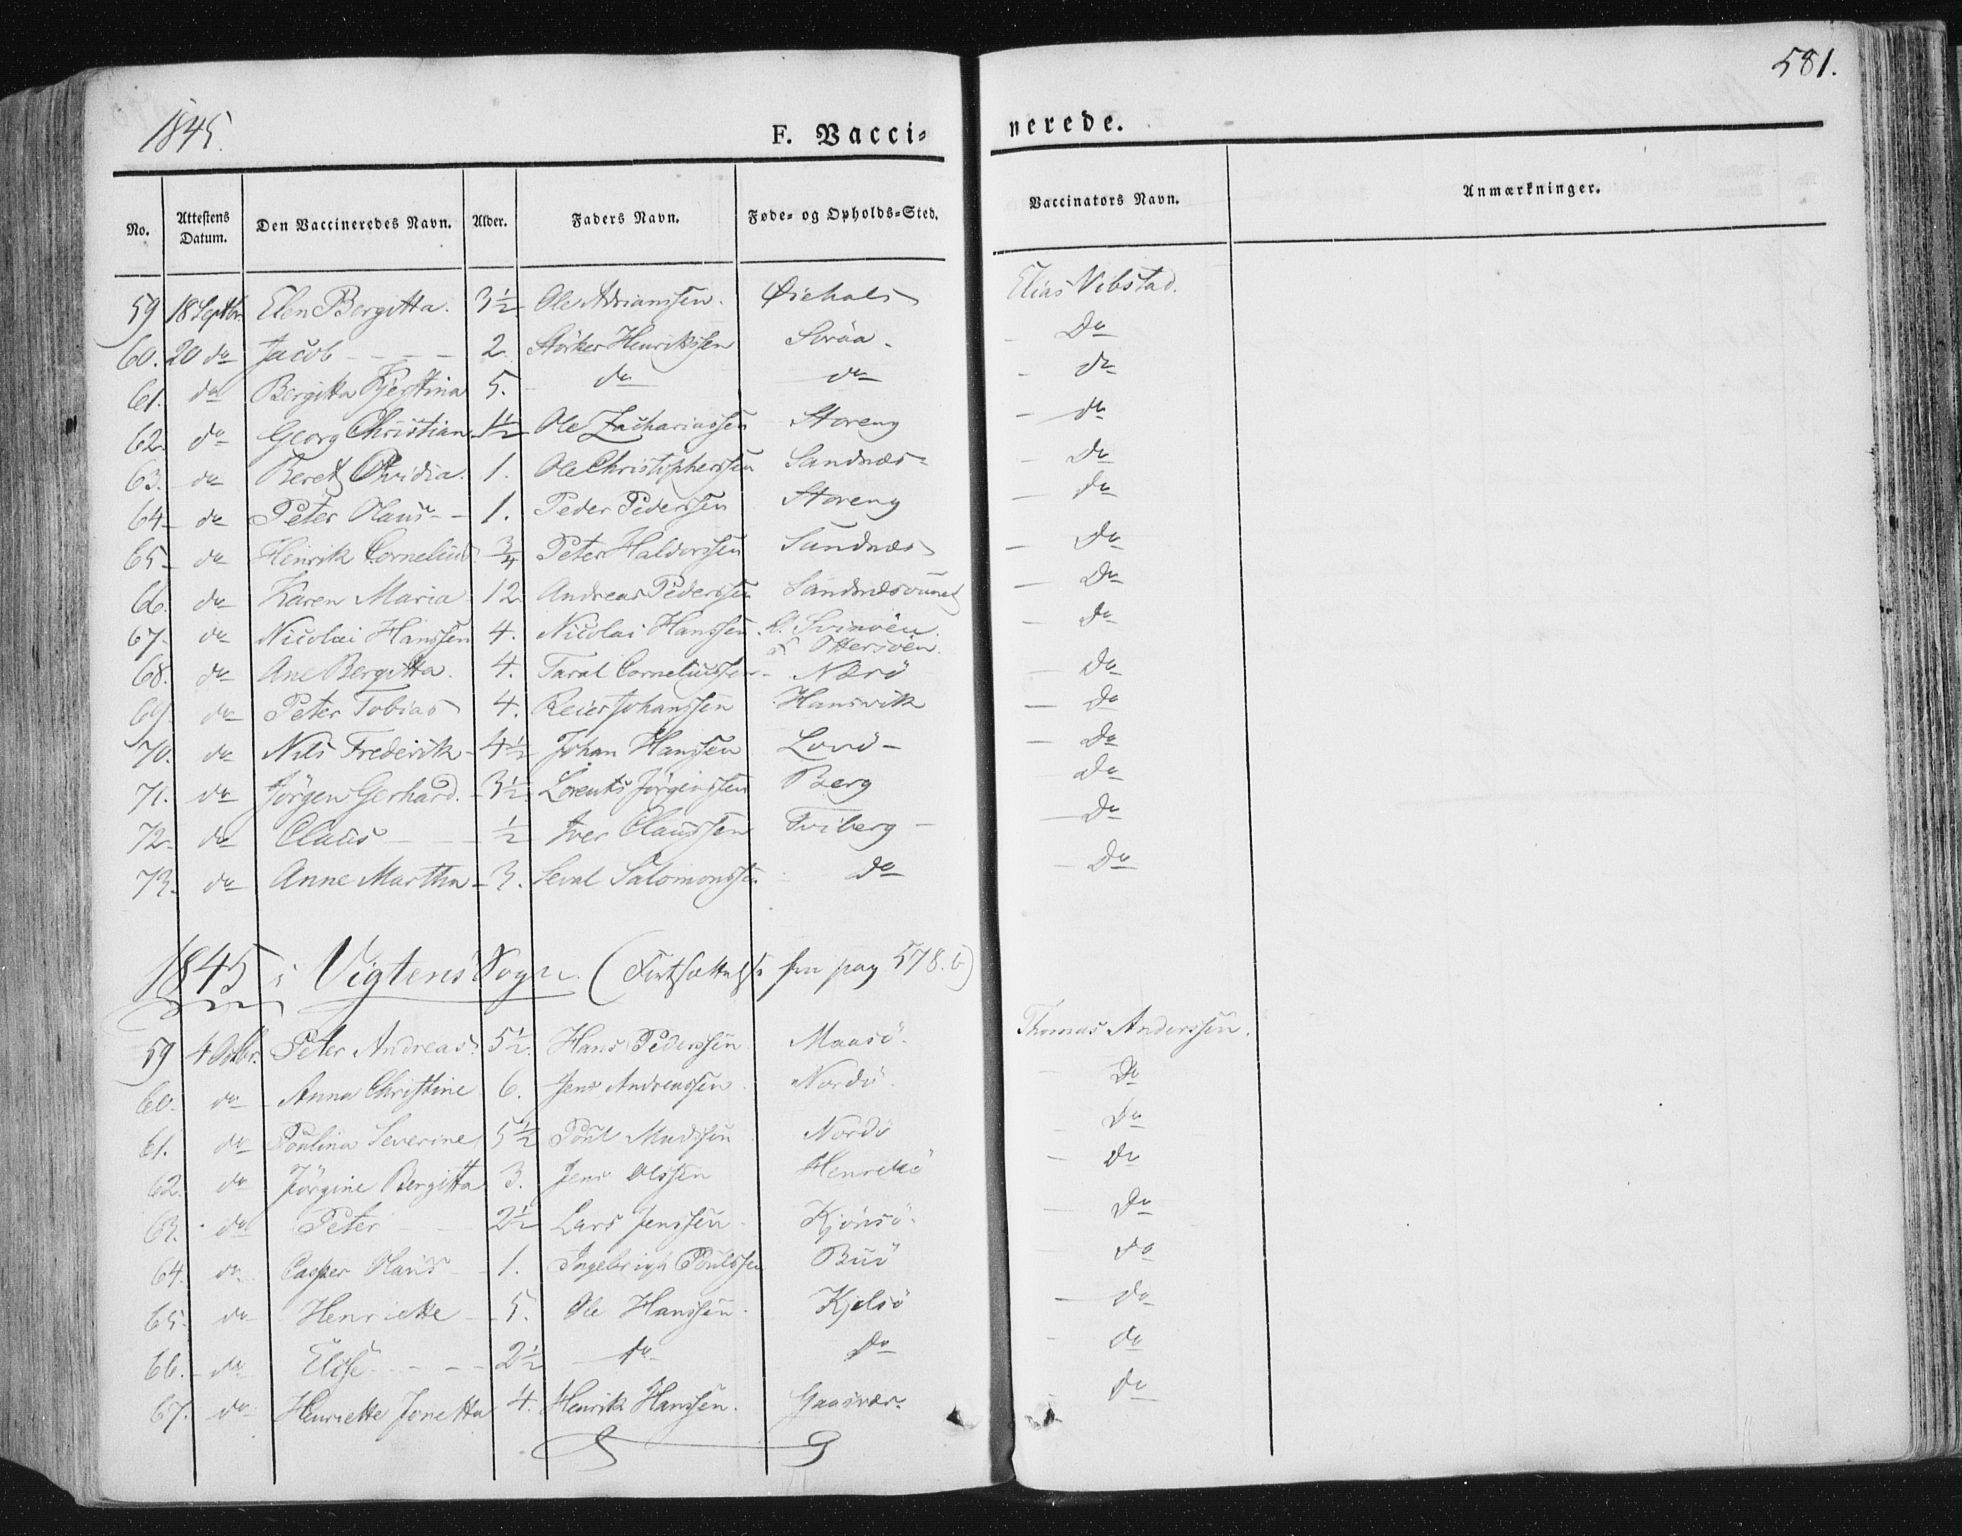 581.
1845.
F. Vacci- nerede.
No. Attestens Datum. Den Vaccineredes Navn. Alder. Faders Navn. Føde- og Opholds-Sted. Vaccinators Navn. Anmærkninger.
59 18 Septbr. Elen Bergitta. 3½ Ole Adrianssen. Øiehals Elias Vibstad.
60. 20 do Jacob - - - 2. Störker Henrikssen Soröa - - Do
61. do Bergitta Kjerstina 5. do do - do
62. do Georg Christian 1½ Ole Zachariassen Storeng - do
63. do Beret Ovidia. 1. Ole Christopherssen Sandnæs - Do
64 do Peter Olaus - - 1. Peder Pederssen Storeng - do
65 do Henrik Cornelius ¾ Peter Halvorssen Sandnæs - Do
66. do Karen Maria 12. Andreas Pederssen Sandnæsvunet - Do
67. do Nicolai Hanssen 4. Nicolai Hanssen. f. Svinöen. o. Ottersöen. - Do
68. do Ane Bergitta. 4. Taral Corneliussen - Nærö - Do
69. do Peter Tobias 4. Reier Johanssen Hansvik - Do
70. do Nils Frederik - 4½ Johan Hanssen Lovö - - Do
71. do Jörgen Gerhard. 3½ Lorents Jörgenssen Berg - Do
72. do Claus - - - ½ Iver Claussen Tviberg - - Do
73. do Anne Martha - 3. Seval Salomonssen do - Do
1845 i Vigtens Sogn. (Fortsættelse fra pag 578.b)
59 4 Octbr. Peter Andreas. 5½. Hans Pederssen Maasö. Thomas Anderssen.
60. do Anna Christine 6. Jens Andreassen. Nordö. Do
61. do Poulina Severine 5½ Poul Madssen Nordö - Do
62. do Jörgine Bergitta 3. Jens Olssen Henrikö - Do
63. do Peter - - 2½ Lars Jenssen - Kjönsö. - Do
64. do Casper Olaus - 1. Ingebrigt Poulssen Buö - do
65. do Henriette - 5. Ole Hanssen. Kjelsö - do
66. do Elise - - - - 2½ do Do - do
67. do Henriette Jonetta 4. Henrik Hanssen. Gaasvær. - do